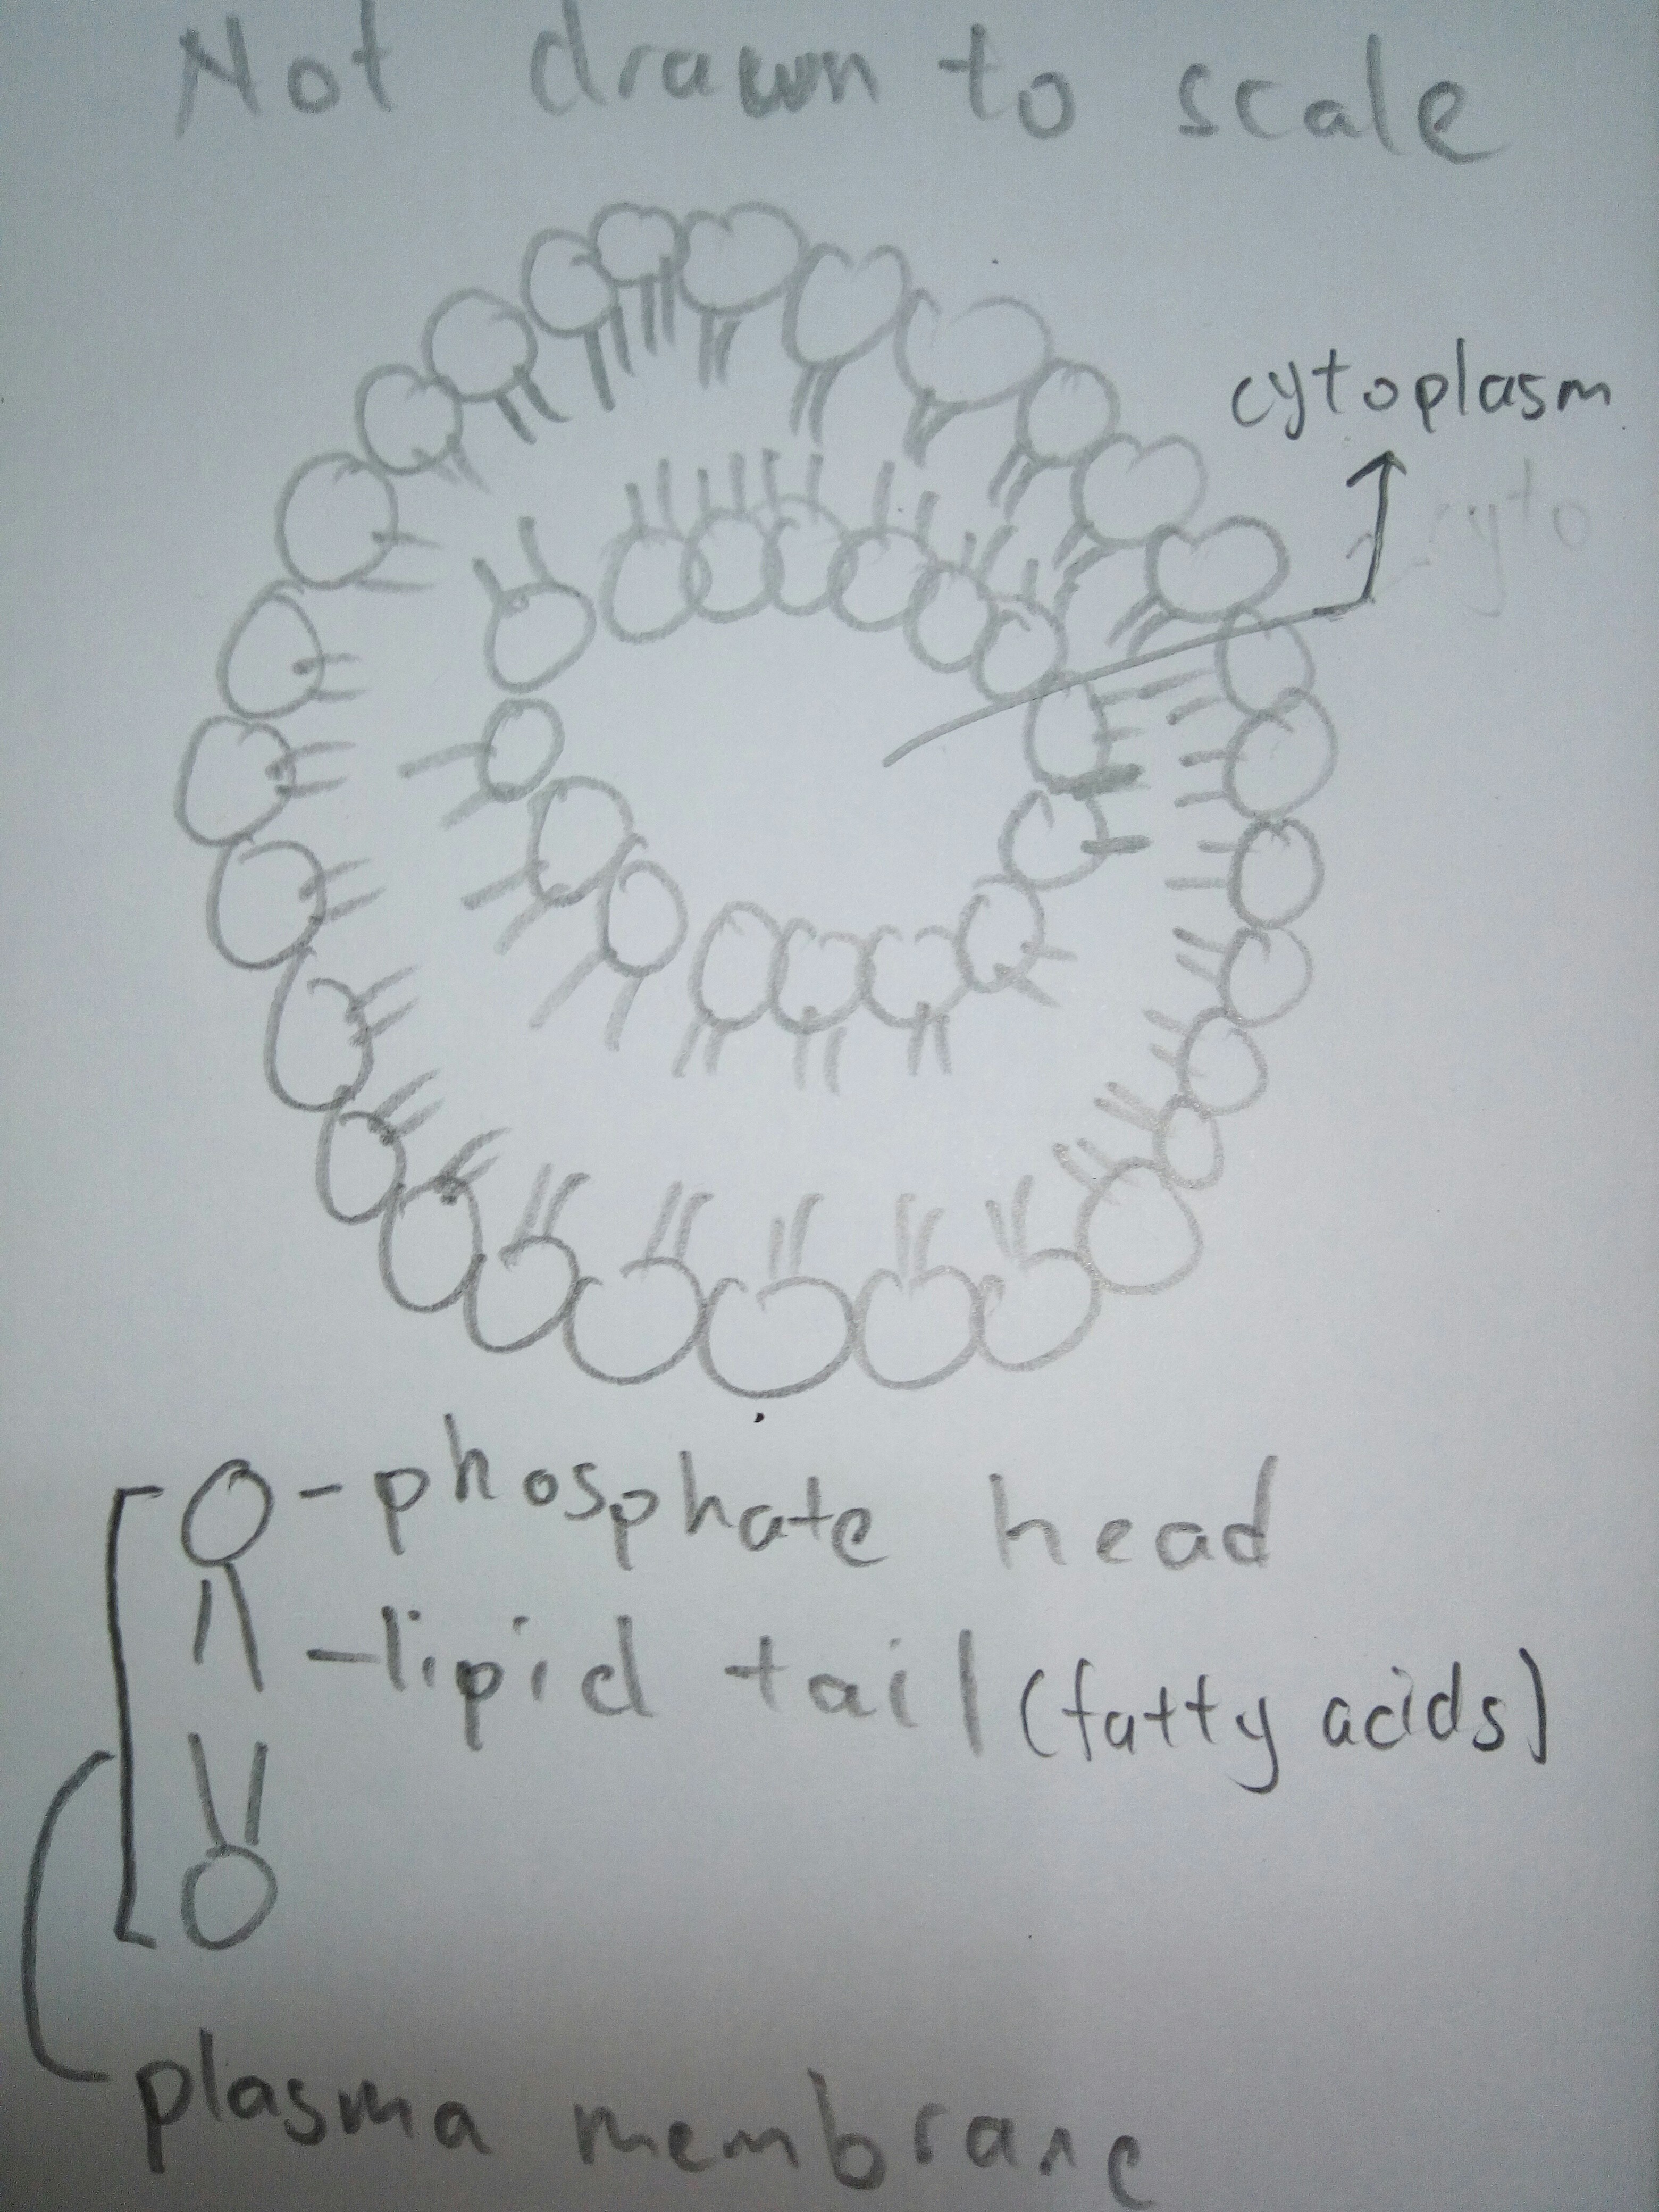 Not drawn to scale
cytoplasm
cyto
-phosphate head
-lipid tail (fatty acids)
plasma membrane